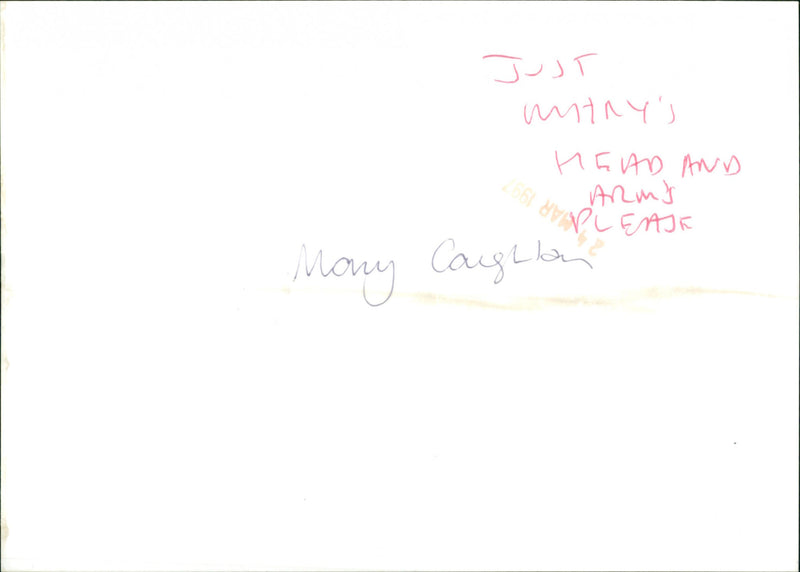 JUST
MARY'S
HEAD AND
ARMS
PLEASE
24 MAR 1997
Mary Caughlan